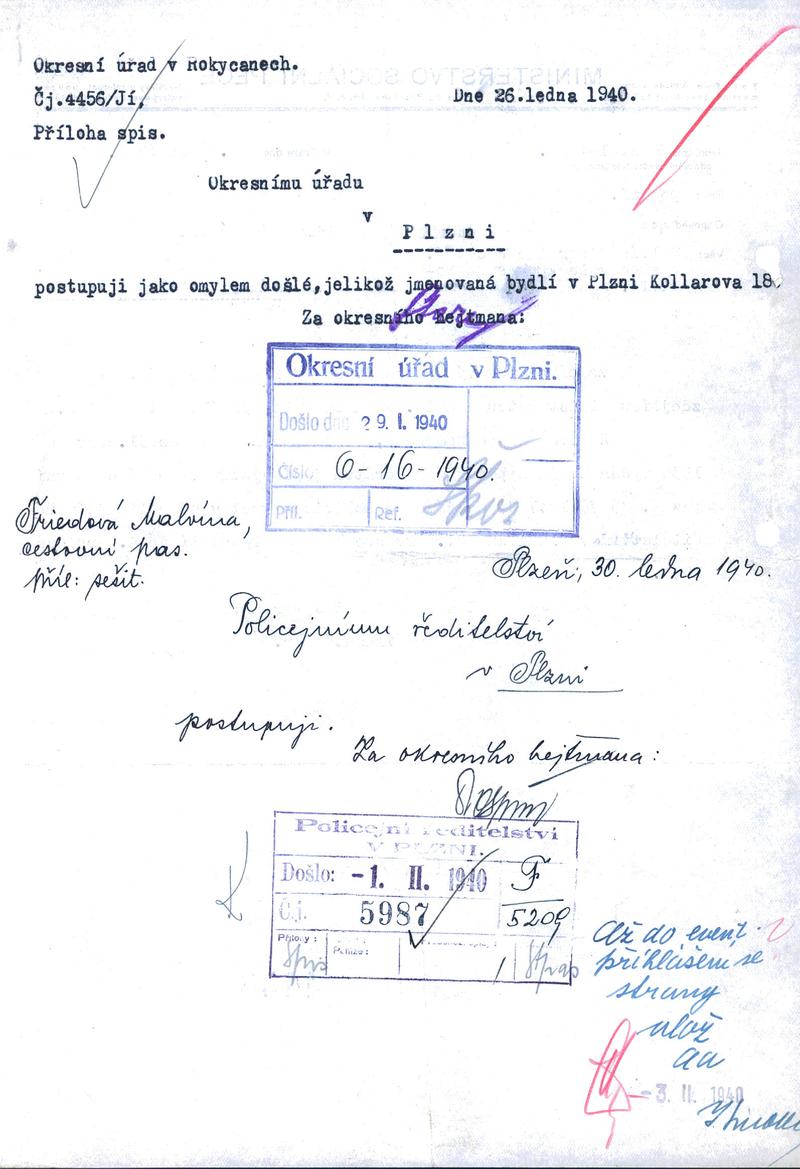 Okresní úřad v Rokycanech.
Čj.4456/Jí,
Dne 26.ledna 1940.
Příloha spis.
Okresnímu úřadu
v
Plzni
postupuji jako omylem došlé,jelikož jmenovaná bydlí v Plzni Kollarova 18.
Za okresního hejtmana:
Okresní úřad v Plzni.
Došlo dne 29. I. 1940
Číslo: 6-16-1940.
Příl. Ref.
Friedová Malvína,
cestovní pas.
příl: sešit.
Plzeň, 30. ledna 1940.
Policejnímu ředitelství
v Plzni
postupuji.
Za okresního hejtmana:
Policejní ředitelství
V PLZNI.
Došlo: -1. II. 1940 F
Č.j. 5987 5209
Přílohy: Peníze:
Až do event.
přihlášení se
strany
ulož
aa
-3. II. 1940